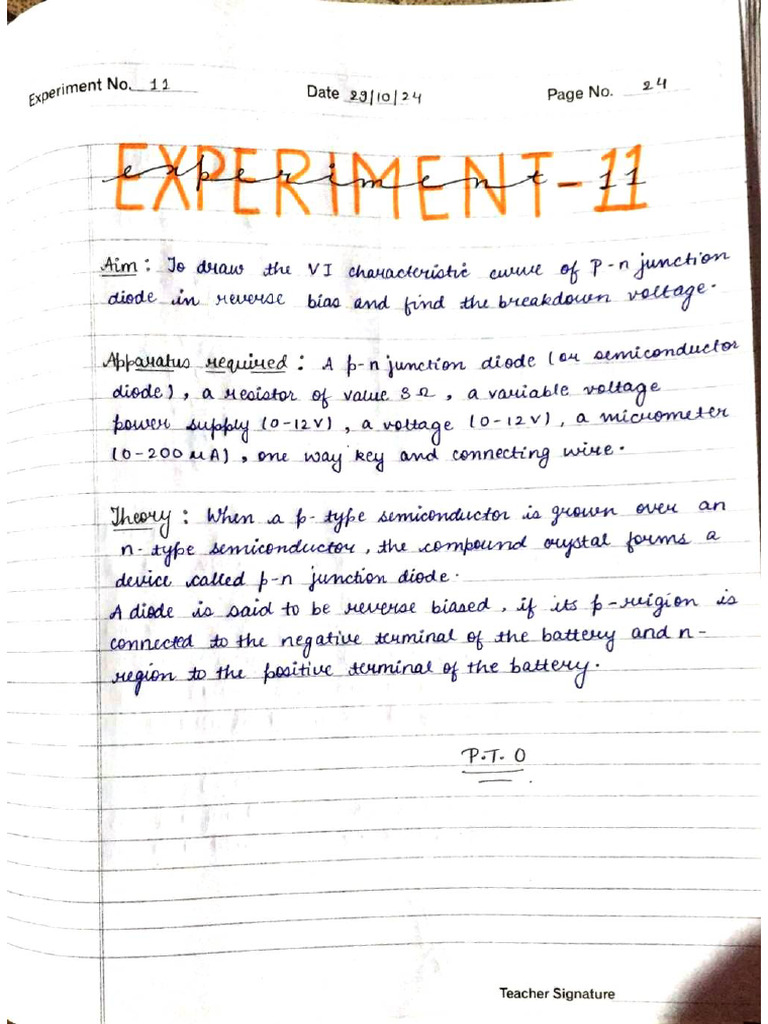 Experiment No. 11 Date 29/10/24 Page No. 24
EXPERIMENT-11
experiment - 11
Aim : To draw the VI characteristic curve of P-n junction
diode in reverse bias and find the breakdown voltage.
Apparatus required : A p-n junction diode (or semiconductor
diode), a resistor of value 3Ω, a variable voltage
power supply (0-12V), a voltage (0-12V), a micrometer
(0-200 μA), one way key and connecting wire.
Theory : When a p-type semiconductor is grown over an
n-type semiconductor, the compound crystal forms a
device called p-n junction diode.
A diode is said to be reverse biased, if its p-reigion is
connected to the negative terminal of the battery and n-
region to the positive terminal of the battery.
P.T.O
Teacher Signature